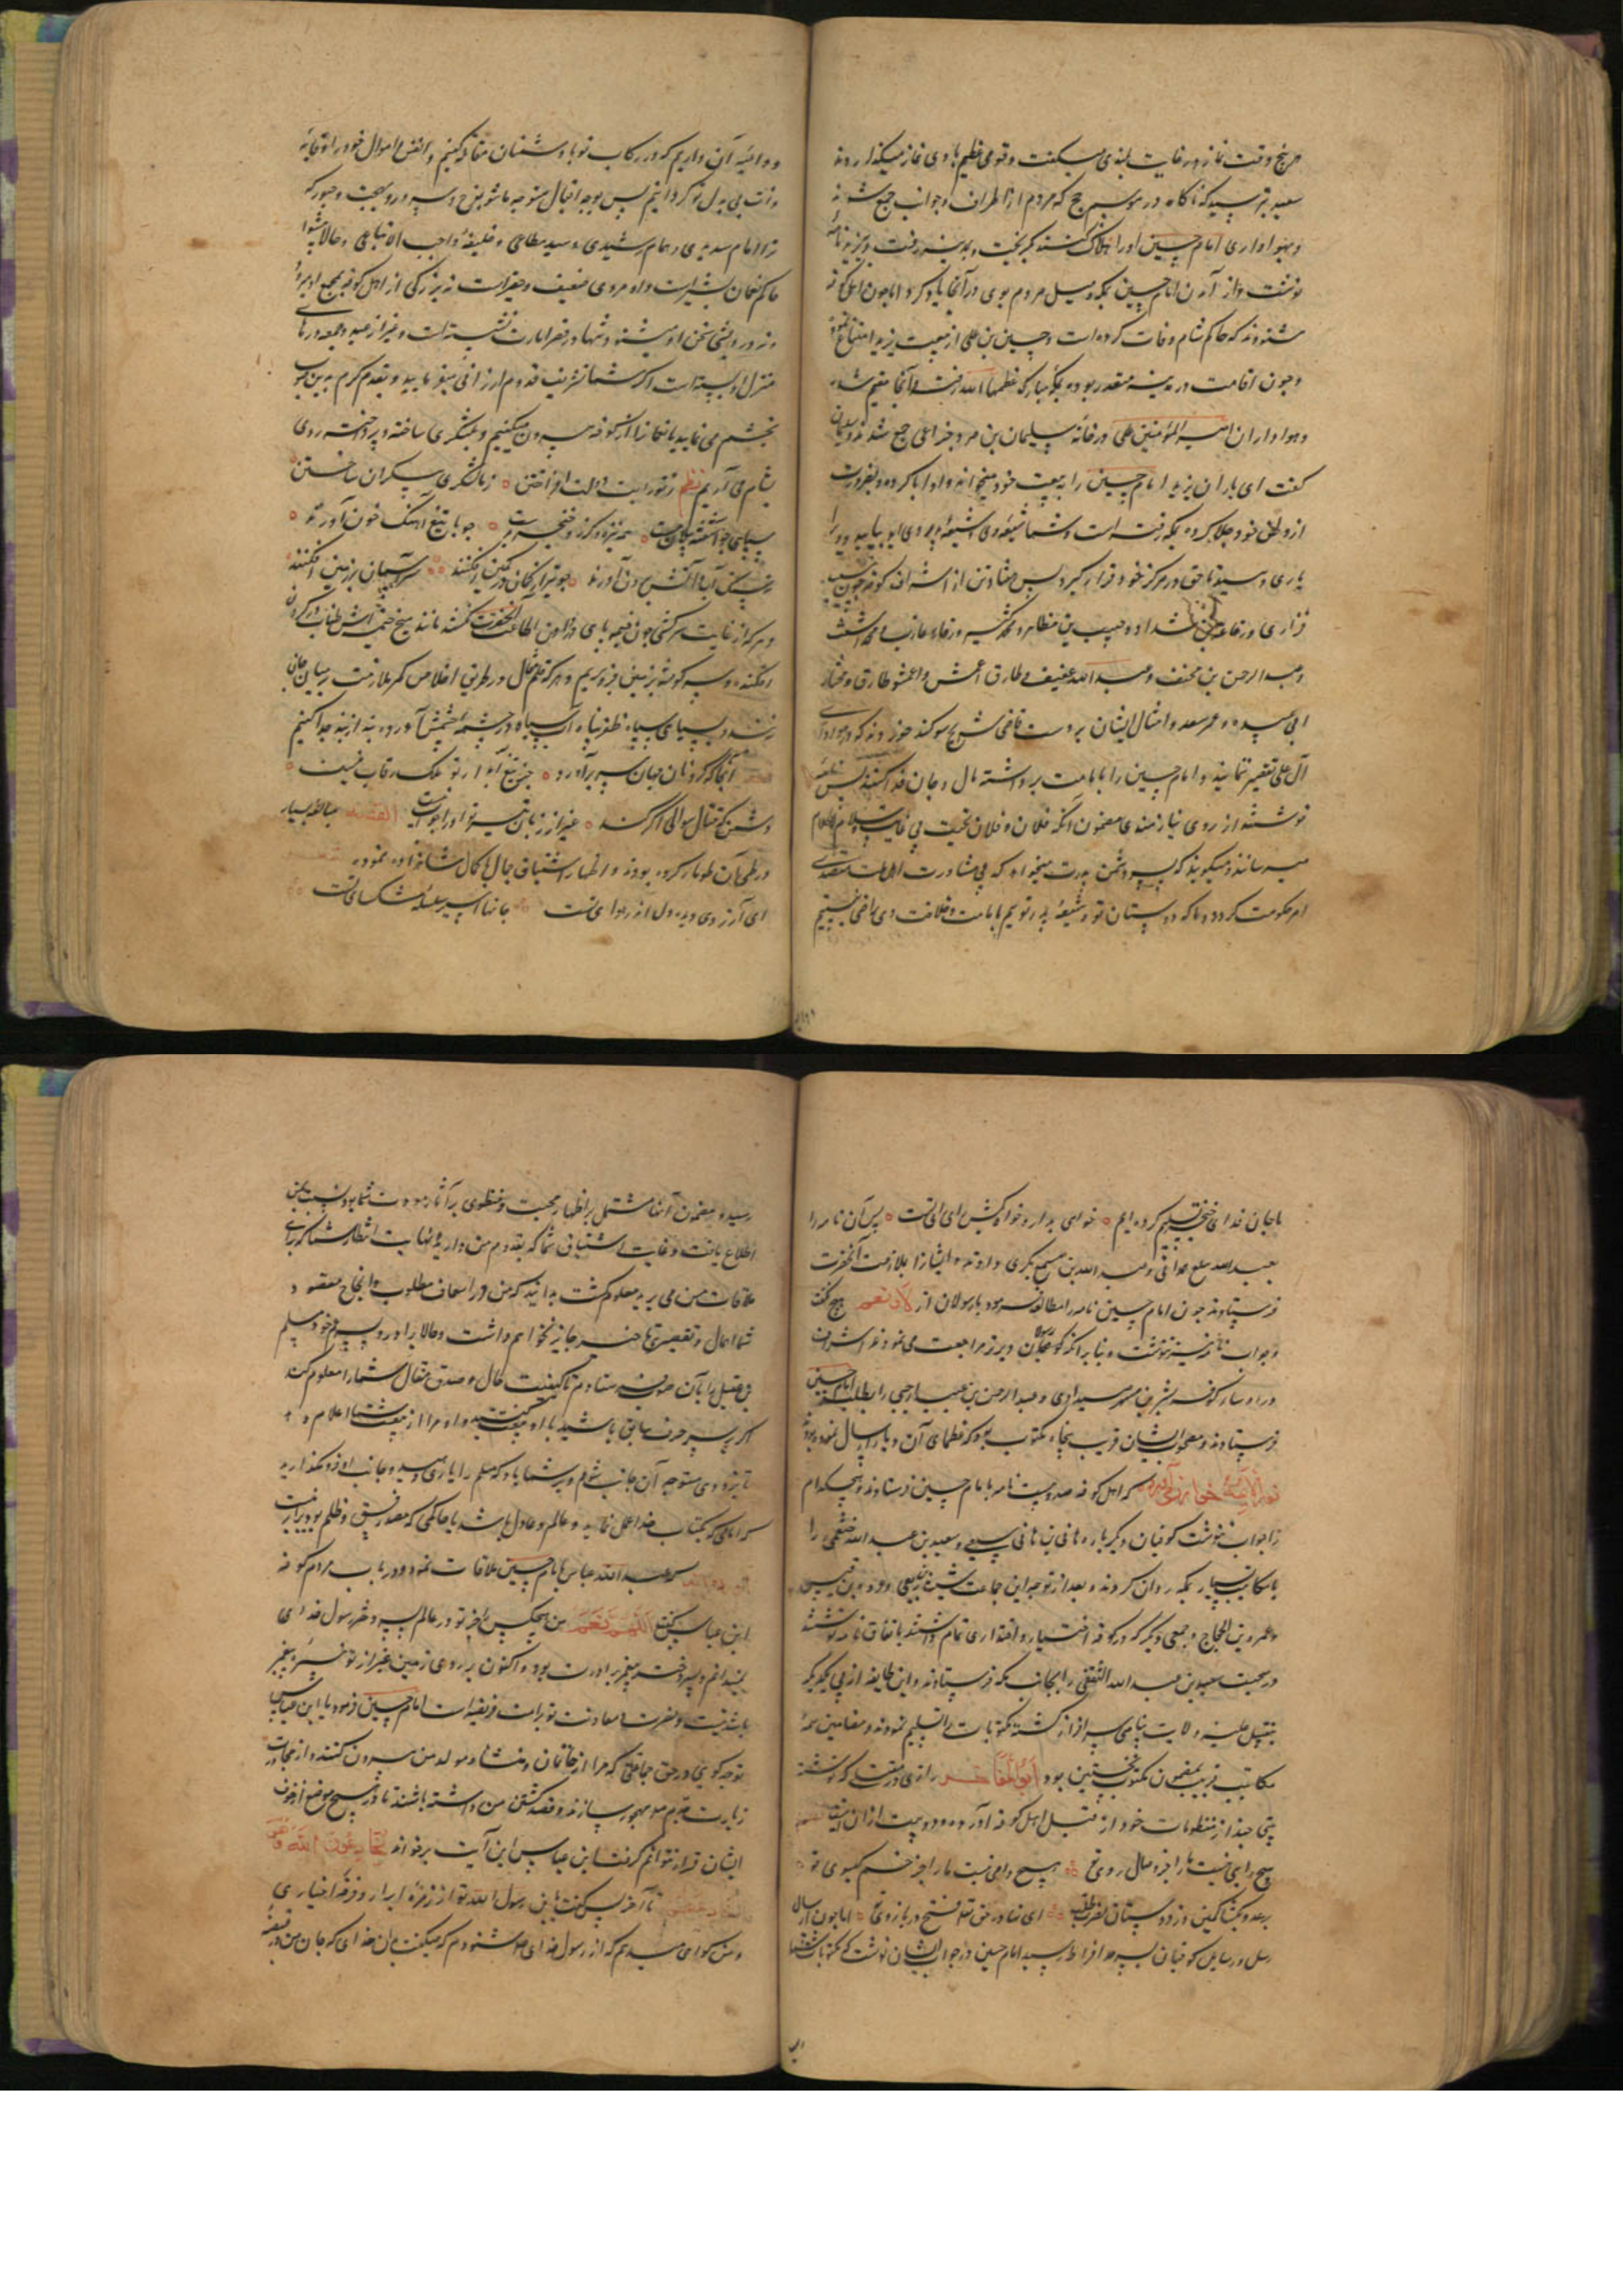 هر پنج وقت نماز در غایت بلندی میکفت و قومی عظیم با وی نماز میکذاردند
سعید بترسید که ناکاه در موسم حج که مردم از اطراف و جوانب جمع شوند
و بهواداری امام حسین او را هلاک کنند بکریخت و بمدینه رفت و بیزید نامهٔ
نوشت و از آمدن امام حسین بمکه و میل مردم بوی در آنجا یاد کرد اما چون اهل کوفه
شنودند که حاکم شام وفات کرده است و حسین بن علی از بیعت یزید امتناع نموده
و چون اقامت در مدینه متعذر بوده بمکه مبارکه عظمها الله رفته و آنجا مقیم شده
و هواداران امیر المؤمنین علی در خانهٔ سلیمان بن صرد خزاعی جمع شدند و سلیمان
کفت ای یاران یزید امام حسین را به بیعت خود میخواند و او ابا کرده و بضرورت
از وطن خود جلا کرده بمکه رفته است و شما شیعهٔ وی و شیعهٔ پدر وی اید بیایید و ویرا
یاری دهید تا حق در مرکز خود قرار کیرد پس هفتاد تن از اشراف کوفه چون مسیب
فزاری و رفاعه بن شداد و حبیب بن مظاهر و محمد کثیر و رقاء عازب و محمد اشعث
و عبد الرحمن بن مخنف و عبد الله عفیف و طارق اعمش و طارق و مختار
ابی عبیده و عمر سعد و امثال ایشان بر دست قاضی شریح سوکند خوردند که در هواداری
آل علی تقصیر ننمایند و امام حسین را بامامت برداشته مال و جان فدا کنند پس نامهٔ
نوشتند از روی نیازمندی مضمون آنکه فلان و فلان تحیت بی غایت و سلام
میرسانند و میکویند که پسر دشمن پدرت میخواهد که بی مشاورت اهل ملت متصدی
امر حکومت کردد و ما که دوستان تو و شیعهٔ پدر توییم بامامت و خلافت وی راضی نیستیم
و داعیهٔ آن داریم که در رکاب تو با دشمنان مقاتله کنیم و انفس و اموال خود را وقایهٔ
ذات بی بدل تو کردانیم پس بوجه اقبال متوجه ما شو بفرح و سرور و بهجت و حبور که
تو امام سدیدی و همام رشیدی و سید مطاعی و خلیفهٔ واجب الاتباعی و حالا پیشوا
حاکم نعمان بشیر است و او مردی ضعیف و حقیر است نه بزرکی از اهل کوفه بمجمع او میرود
و نه درویشی سخن او میشنود و تنها در قصر امارت نشسته است و غیر از عید و جمعه در سرای
منزل او بسته است اکر شما تشریف قدوم ارزانی میفرمایید و بقدم کرم بدین صوب
تجشم می نمایید ما نعمانرا از کوفه بیرون میکنیم و لشکری ساخته و پرداخته روی
بشام می آریم نظم ز تو رایت دولت افراختن ز ما لشکری بیکران ساختن
سپاهی همه نیزه و کرز و خنجر بدست چو با تیغ آهنک خون آورند
ز سنک آب و آتش برون آورند چو تیر از کمان در کمین افکنند سر آسمان بر زمین افکنند
و هر که از غایت سرکشی چون خیمه پای از دامن اطاعت آنحضرت کشد مانند میخ خیمه اش طناب در کردن
افکنده و سر کوفته بزمین فرو بریم و هر که قلم مثال در طریق اخلاص کمر ملازمت بر میان جان
نزند سیاهی سپاه ظفرپناه آب سیاه در چشمهٔ چشمش آورده بند از بند جدا کنیم
آنجا که کردنان جهان سر برآورند جز تیغ آبدار تو مالک رقاب نیست
دشمن که قتال سوالی اکر کند غیر از زبان تیر تو او را جواب نیست القصه مبالغهٔ بسیار
در طی آن طومار کرده بودند و اظهار اشتیاق جمال با کمال شاهزاده نموده
ای آرزوی دیده دل از هوای تست جانها اسیر سلسلهٔ مشکسای تست
ما جان فدای خنجر تسلیم کرده ایم خواهی بدار و خواه بکش رای رای تست پس آن نامه را
بعبد الله سلع همدانی و عبد الله بن مسمع بکری دادند و ایشانرا بملازمت آنحضرت
فرستادند چون امام حسین نامه را مطالعه فرمود با رسولان از لا و نعم هیچ نکفت
و جواب نامه نیز ننوشت و بنابر آنکه قاصدان دیرتر مراجعت می نمودند اشراف
و رؤسای کوفه بشر بن مسهر صیداوی و عبد الرحمن بن عبید ارحبی را بطلب امام حسین
فرستادند و مصحوب ایشان قریب پنجاه مکتوب بود که عظمای آن دیار ارسال نموده بودند
نور الائمه خوارزمی آورده که اهل کوفه صد و بیست نامه بامام حسین فرستادند و هیچکدام
را جواب ننوشت کوفیان دیکر باره هانی بن هانی سبیعی و سعید بن عبد الله خثعمی را
با مکاتیب بسیار بمکه روان کردند و بعد از توجه این جماعت شبث ربعی و عروه بن قیس
و عمرو بن الحجاج و جمعی دیکر که در کوفه اختیار و اقتداری تمام داشتند باتفاق نامه نوشتند
در صحبت سعید بن عبد الله الثقفی را بجانب مکه فرستادند و این طایفه از پی یکدیکر
بتقبیل عتبهٔ ولایت پناهی سرافراز کشته مکتوبات را تسلیم نمودند و مضامین همهٔ
مکاتیب قریب بمضمون مکتوب نخستین بود ابو المفاخر رازی در مقتلی که نوشته
بیتی چند از منظومات خود از قبل اهل کوفه آورده و دو بیت از آن اینست
هیچ رای نیست ما را جز وصال روی تو هیچ دامی نیست ما را جز خم کیسوی تو
برعدو بکشا کمین وز دوستان نصرت طلب ای نهاده حق تعالی فتح در بازوی تو اما چون ارسال
رسل و رسایل کوفیان بسرحد افراط رسید امام حسین در جواب ایشان نوشت که مکتوبات شما
رسید و مضمون آنها مشتمل بر اظهار محبت و منطوی بر آثار مودت شما بود نسبت بمن
اطلاع یافت و غایت اشتیاق شما که بقدوم من دارید و نهایت انتظار شما که برای
ملاقات من می برید معلوم کشت بدانید که من در اسعاف مطلوب و انجاح مقصود
شما اهمال و تقصیری جایز نخواهم داشت و حالا برادر و پسر عم خود مسلم
بن عقیل را بآن صوب فرستادم تا کیفیت حال و صدق مقال شما را معلوم کند
اکر بر سر حرف سابق باشید با او بیعت کنید و او مرا از بیعت شما اعلام دهد
تا بزودی متوجه آن جانب شوم و بر شما باد که مسلم را یاری دهید و جانب او فرو نکذارید
که امامی که بکتاب خدا عمل نماید و عالم و عادل باشد با حاکمی که مصدر فسق و ظلم بود برابر نیست
آورده اند که عبد الله عباس با امام حسین ملاقات نمود و در باب مردم کوفه
ابن عباس کفت اللهم نعم من هیچکس را بجز تو در عالم پسر دختر رسول خدای
نمیدانم و پسر دختر پیغمبر برادرت بود و اکنون بر روی زمین غیر از تو نبیرهٔ پیغمبر
باشد نیست و نصرت و معاونت تو بر امت فریضه است امام حسین فرمود یا ابن عباس
تو چه کویی در حق جماعتی که مرا از خانمان و منشا و مولد من بیرون کنند و از مجاورت
زیارت جدم مهجور سازند و قصد کشتن من داشته باشند تا در هیچ موضع از خوف
ایشان قرار نتوانم کرفت ابن عباس این آیت برخواند یخادعون الله و هو
خادعهم تا آخر پس کفت یا ابن رسول الله تو از زمرهٔ ابرار و فرقهٔ اخیاری
و من کواهی میدهم که از رسول خدای شنودم که میکفت بدان خدای که جان من در قبضهٔ